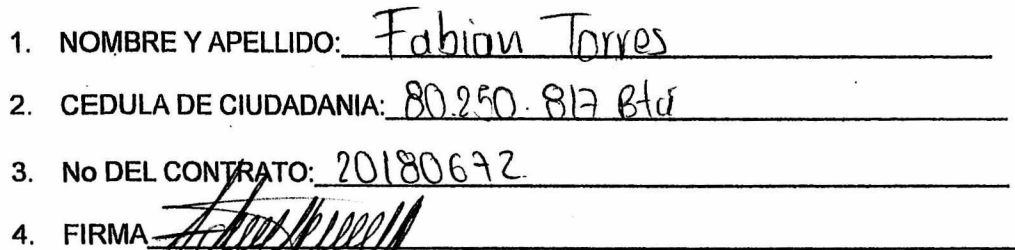 1. NOMBRE Y APELLIDO: Fabian Torres
2. CEDULA DE CIUDADANIA: 80.250.817 Bta
3. No DEL CONTRATO: 20180672
4. FIRMA